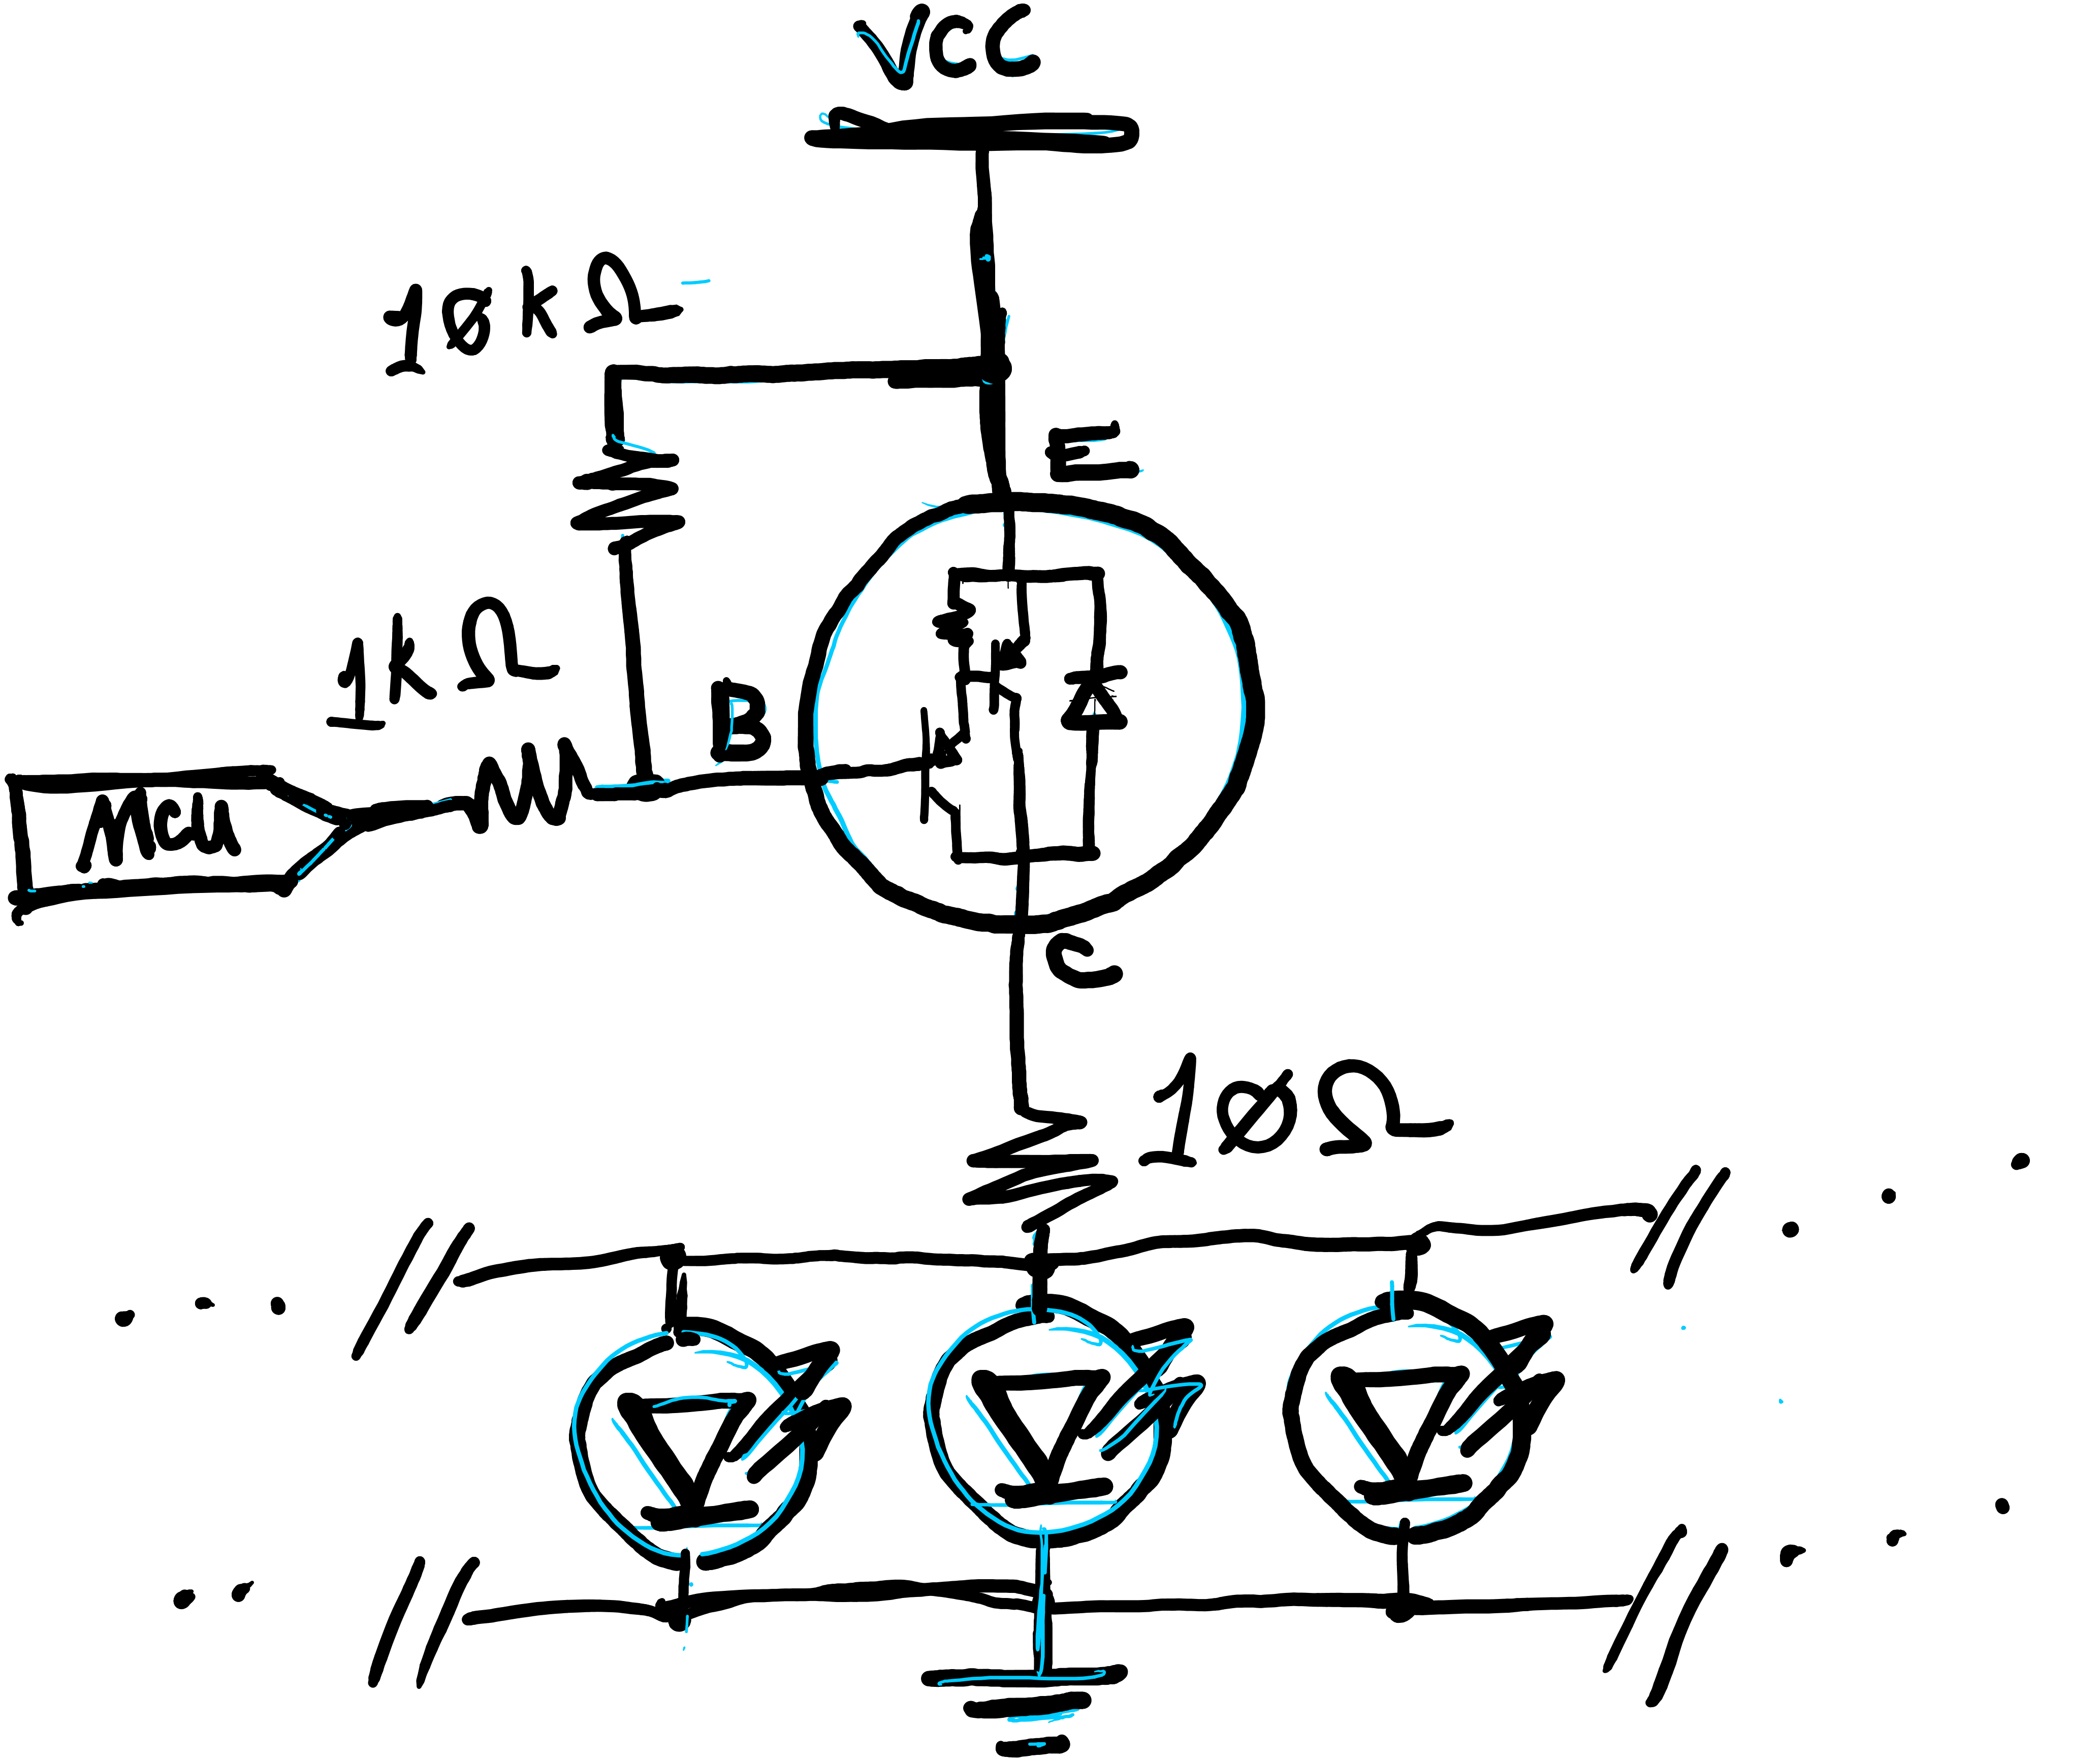 VCC
10kΩ
E
1kΩ
B
MCU
C
10Ω